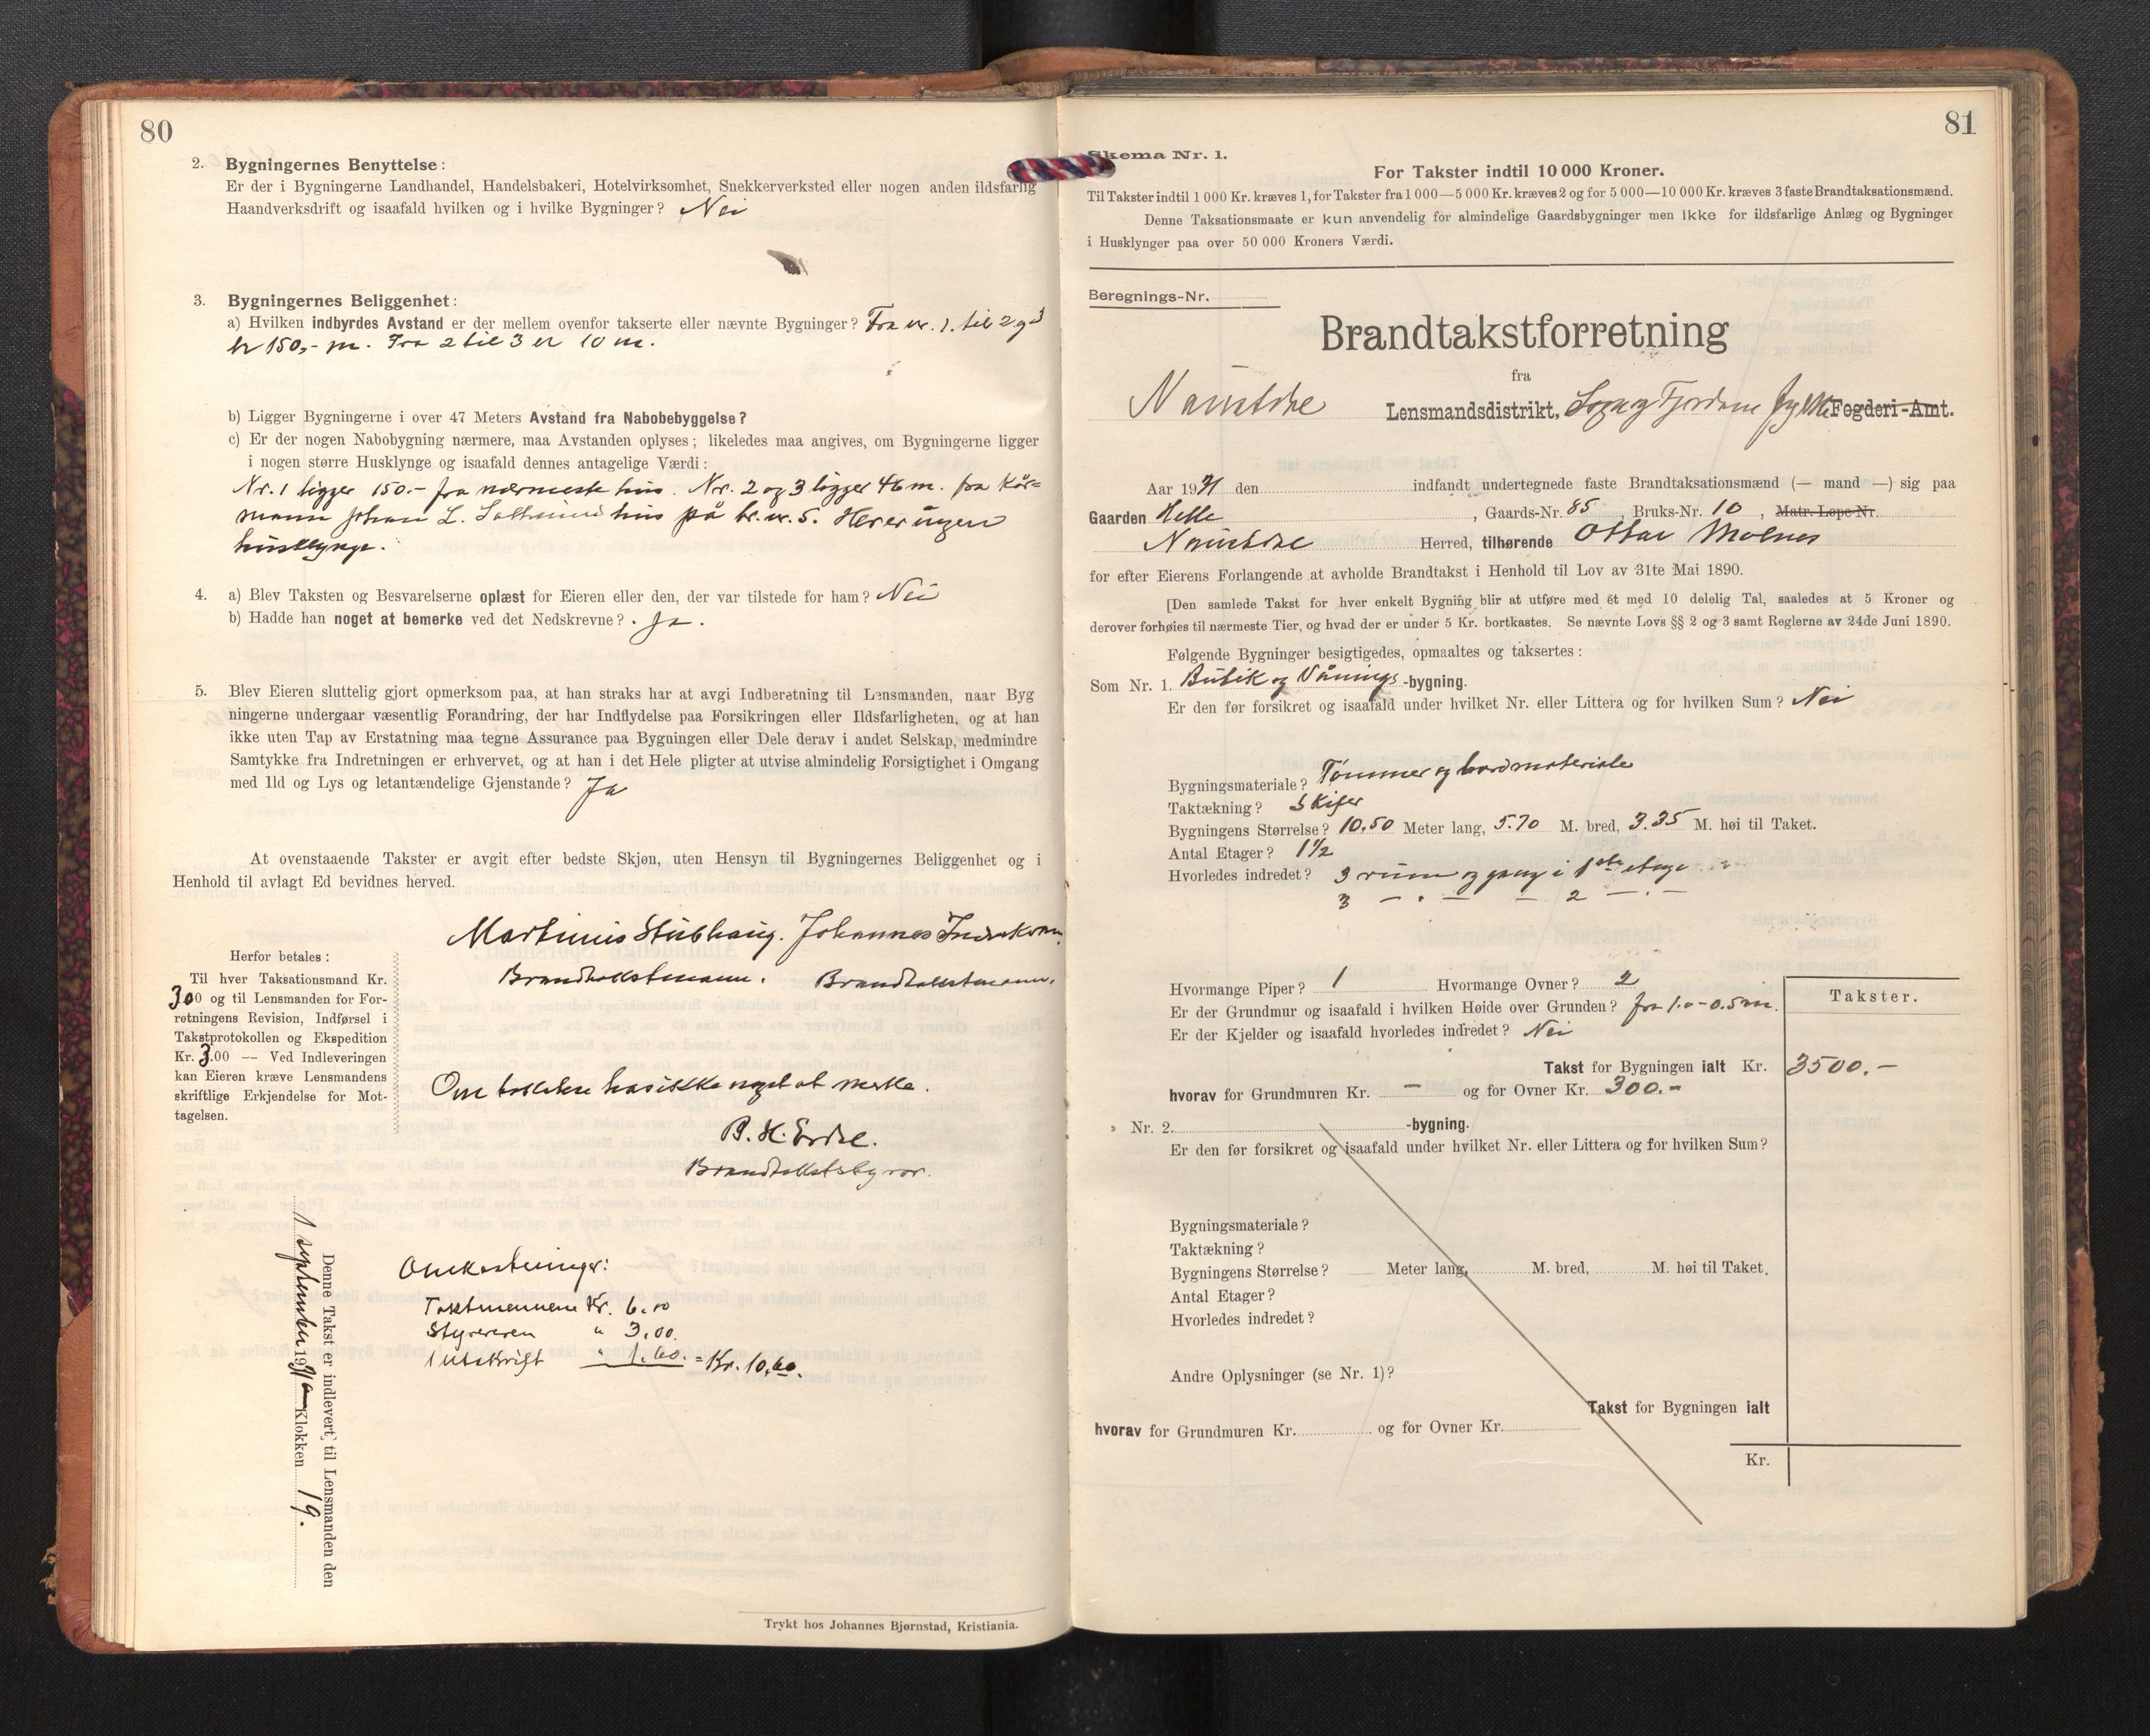 80
2. Bygningernes Benyttelse:
Er der i Bygningerne Landhandel, Handelsbakeri, Hotelvirksomhet, Snekkerverksted eller nogen anden ildsfarlig
Haandverksdrift og isaafald hvilken og i hvilke Bygninger? Nei
3. Bygningernes Beliggenhet:
a) Hvilken indbyrdes Avstand er der mellem ovenfor takserte eller nævnte Bygninger? Fra nr. 1. til 2 og 3
er 150,- m. Fra 2 til 3 er 10 m.
b) Ligger Bygningerne i over 47 Meters Avstand fra Nabobebyggelse?
c) Er der nogen Nabobygning nærmere, maa Avstanden oplyses; likeledes maa angives, om Bygningerne ligger
i nogen større Husklynge og isaafald dennes antagelige Værdi:
Nr. 1 ligger 150.- fra nærmeste hus. Nr. 2 og 3 ligger 46 m. fra Kår=
mann Johan L. hus på br. nr. 5. Her er ingen
husklynge.
4. a) Blev Taksten og Besvarelserne oplæst for Eieren eller den, der var tilstede for ham? Nei
b) Hadde han noget at bemerke ved det Nedskrevne? . Ja.
5. Blev Eieren sluttelig gjort opmerksom paa, at han straks har at avgi Indberetning til Lensmanden, naar Byg
ningerne undergaar væsentlig Forandring, der har Indflydelse paa Forsikringen eller Ildsfarligheten, og at han
ikke uten Tap av Erstatning maa tegne Assurance paa Bygningen eller Dele derav i andet Selskap, medmindre
Samtykke fra Indretningen er erhvervet, og at han i det Hele pligter at utvise almindelig Forsigtighet i Omgang
med Ild og Lys og letantændelige Gjenstande? Ja
At ovenstaaende Takster er avgit efter bedste Skjøn, uten Hensyn til Bygningernes Beliggenhet og i
Henhold til avlagt Ed bevidnes herved.
Martinus Stubhaug. Johannes Indrekvam.
Brandtakstmann. Brandtakstmann.
Herfor betales:
Til hver Taksationsmand Kr.
3.00 og til Lensmanden for For-
retningens Revision, Indførsel i
Takstprotokollen og Ekspedition
Kr. 3.00 — Ved Indleveringen
kan Eieren kræve Lensmandens
skriftlige Erkjendelse for Mot-
tagelsen.
Om taksten has ikke noget at merke.
B. H. Erdal.
Brandtakstbestyrer.
Omkostninger:
Takstmennene Kr. 6.00
Styreren " 3.00.
1 utskrift " 1.60. = Kr. 10.60.
Denne Takst er indlevert til Lensmanden den
1 september 1931 Klokken 19.
Trykt hos Johannes Bjørnstad, Kristiania.
81
Skema Nr. 1.
For Takster indtil 10 000 Kroner.
Til Takster indtil 1 000 Kr. kræves 1, for Takster fra 1 000—5 000 Kr. kræves 2 og for 5 000—10 000 Kr. kræves 3 faste Brandtaksationsmænd.
Denne Taksationsmaate er kun anvendelig for almindelige Gaardsbygninger men ikke for ildsfarlige Anlæg og Bygninger
i Husklynger paa over 50 000 Kroners Værdi.
Beregnings-Nr.
Brandtakstforretning
fra
Naustdal Lensmandsdistrikt, Sogn og Fjordane fylke Fogderi-Amt.
Aar 1931 den indfandt undertegnede faste Brandtaksationsmænd (— mand —) sig paa
Gaarden Helle, Gaards-Nr. 85, Bruks-Nr. 10, Matr. Løpe-Nr.
Naustdal Herred, tilhørende Ottar Molnes
for efter Eierens Forlangende at avholde Brandtakst i Henhold til Lov av 31te Mai 1890.
[Den samlede Takst for hver enkelt Bygning blir at utføre med et med 10 delelig Tal, saaledes at 5 Kroner og
derover forhøies til nærmeste Tier, og hvad der er under 5 Kr. bortkastes. Se nævnte Lovs §§ 2 og 3 samt Reglerne av 24de Juni 1890.
Følgende Bygninger besigtigedes, opmaaltes og taksertes:
Som Nr. 1. Butik og Vånings-bygning.
Er den før forsikret og isaafald under hvilket Nr. eller Littera og for hvilken Sum? Nei
Bygningsmateriale? Tømmer og bordmateriale
Taktækning? Skifer
Bygningens Størrelse? 10.50 Meter lang, 5.70 M. bred, 3.35 M. høi til Taket.
Antal Etager? 1½
Hvorledes indredet? 3 rum og gang i 1ste etage
3 — " — — 2 — " —
Hvormange Piper? 1 Hvormange Ovner? 2
Er der Grundmur og isaafald i hvilken Høide over Grunden? fra 1.0-0.5 m.
Er der Kjelder og isaafald hvorledes indredet? Nei
Takster.
Takst for Bygningen ialt Kr. 3500.-
hvorav for Grundmuren Kr. — og for Ovner Kr. 300.-
» Nr. 2. -bygning.
Er den før forsikret og isaafald under hvilket Nr. eller Littera og for hvilken Sum?
Bygningsmateriale?
Taktækning?
Bygningens Størrelse? Meter lang, M. bred, M. høi til Taket.
Antal Etager?
Hvorledes indredet?
Andre Oplysninger (se Nr. 1)?
Takst for Bygningen ialt
hvorav for Grundmuren Kr. og for Ovner Kr.
Kr.